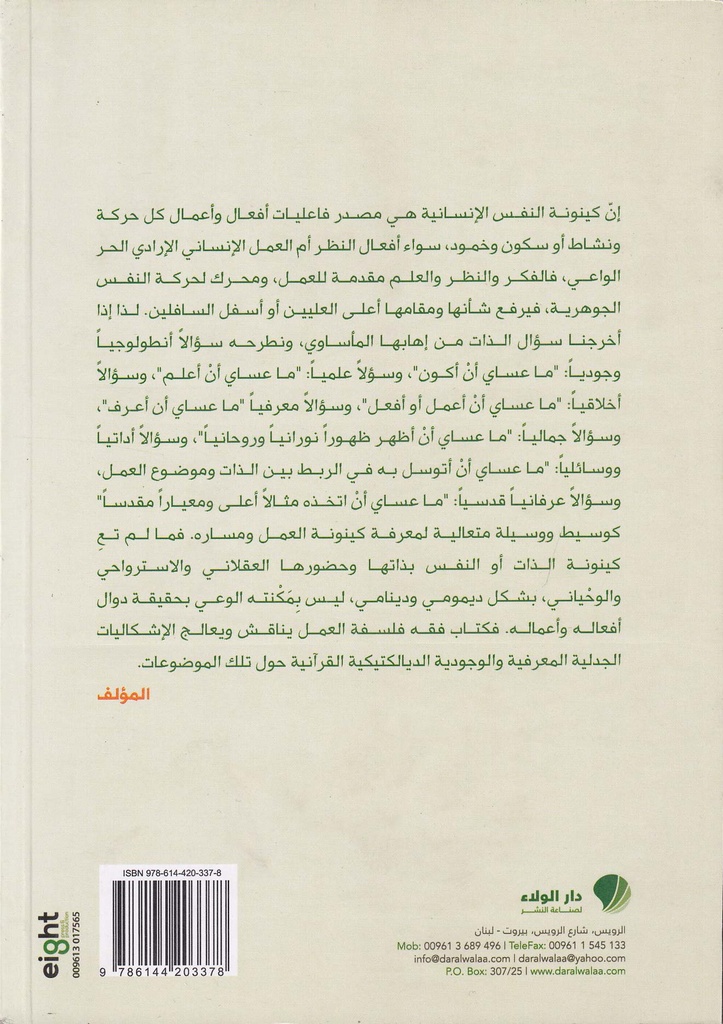 إنّ كينونة النفس الإنسانية هي مصدر فاعليات أفعال وأعمال كل حركة
ونشاط أو سكون وخمود، سواء أفعال النظر أم العمل الإنساني الإرادي الحر
الواعي، فالفكر والنظر والعلم مقدمة للعمل، ومحرك لحركة النفس
الجوهرية، فيرفع شأنها ومقامها أعلى العليين أو أسفل السافلين. لذا إذا
أخرجنا سؤال الذات من إهابها المأساوي، ونطرحه سؤالاً أنطولوجياً
وجودياً: "ما عساي أنْ أكون"، وسؤلاً علمياً: "ما عساي أنْ أعلم"، وسؤالاً
أخلاقياً: "ما عساي أنْ أعمل أو أفعل"، وسؤالاً معرفياً "ما عساي أن أعرف"،
وسؤالاً جمالياً: "ما عساي أنْ أظهر ظهوراً نورانياً وروحانياً"، وسؤالاً أداتياً
ووسائلياً: "ما عساي أنْ أتوسل به في الربط بين الذات وموضوع العمل،
وسؤالاً عرفانياً قدسياً: "ما عساي أنْ اتخذه مثالاً أعلى ومعياراً مقدساً"
كوسيط ووسيلة متعالية لمعرفة كينونة العمل ومساره. فما لم تعِ
كينونة الذات أو النفس بذاتها وحضورها العقلاني والاسترواحي
والوحْياني، بشكل ديمومي ودينامي، ليس بِمَكْنته الوعي بحقيقة دوال
أفعاله وأعماله. فكتاب فقه فلسفة العمل يناقش ويعالج الإشكاليات
الجدلية المعرفية والوجودية الديالكتيكية القرآنية حول تلك الموضوعات.
المؤلف
ISBN 978-614-420-337-8
9 786144 203378
eight
009613 017565
دار الولاء
لصناعة النشر
الرويس، شارع الرويس، بيروت - لبنان
Mob: 00961 3 689 496 | TeleFax: 00961 1 545 133
info@daralwalaa.com | daralwalaa@yahoo.com
P.O. Box: 307/25 | www.daralwalaa.com